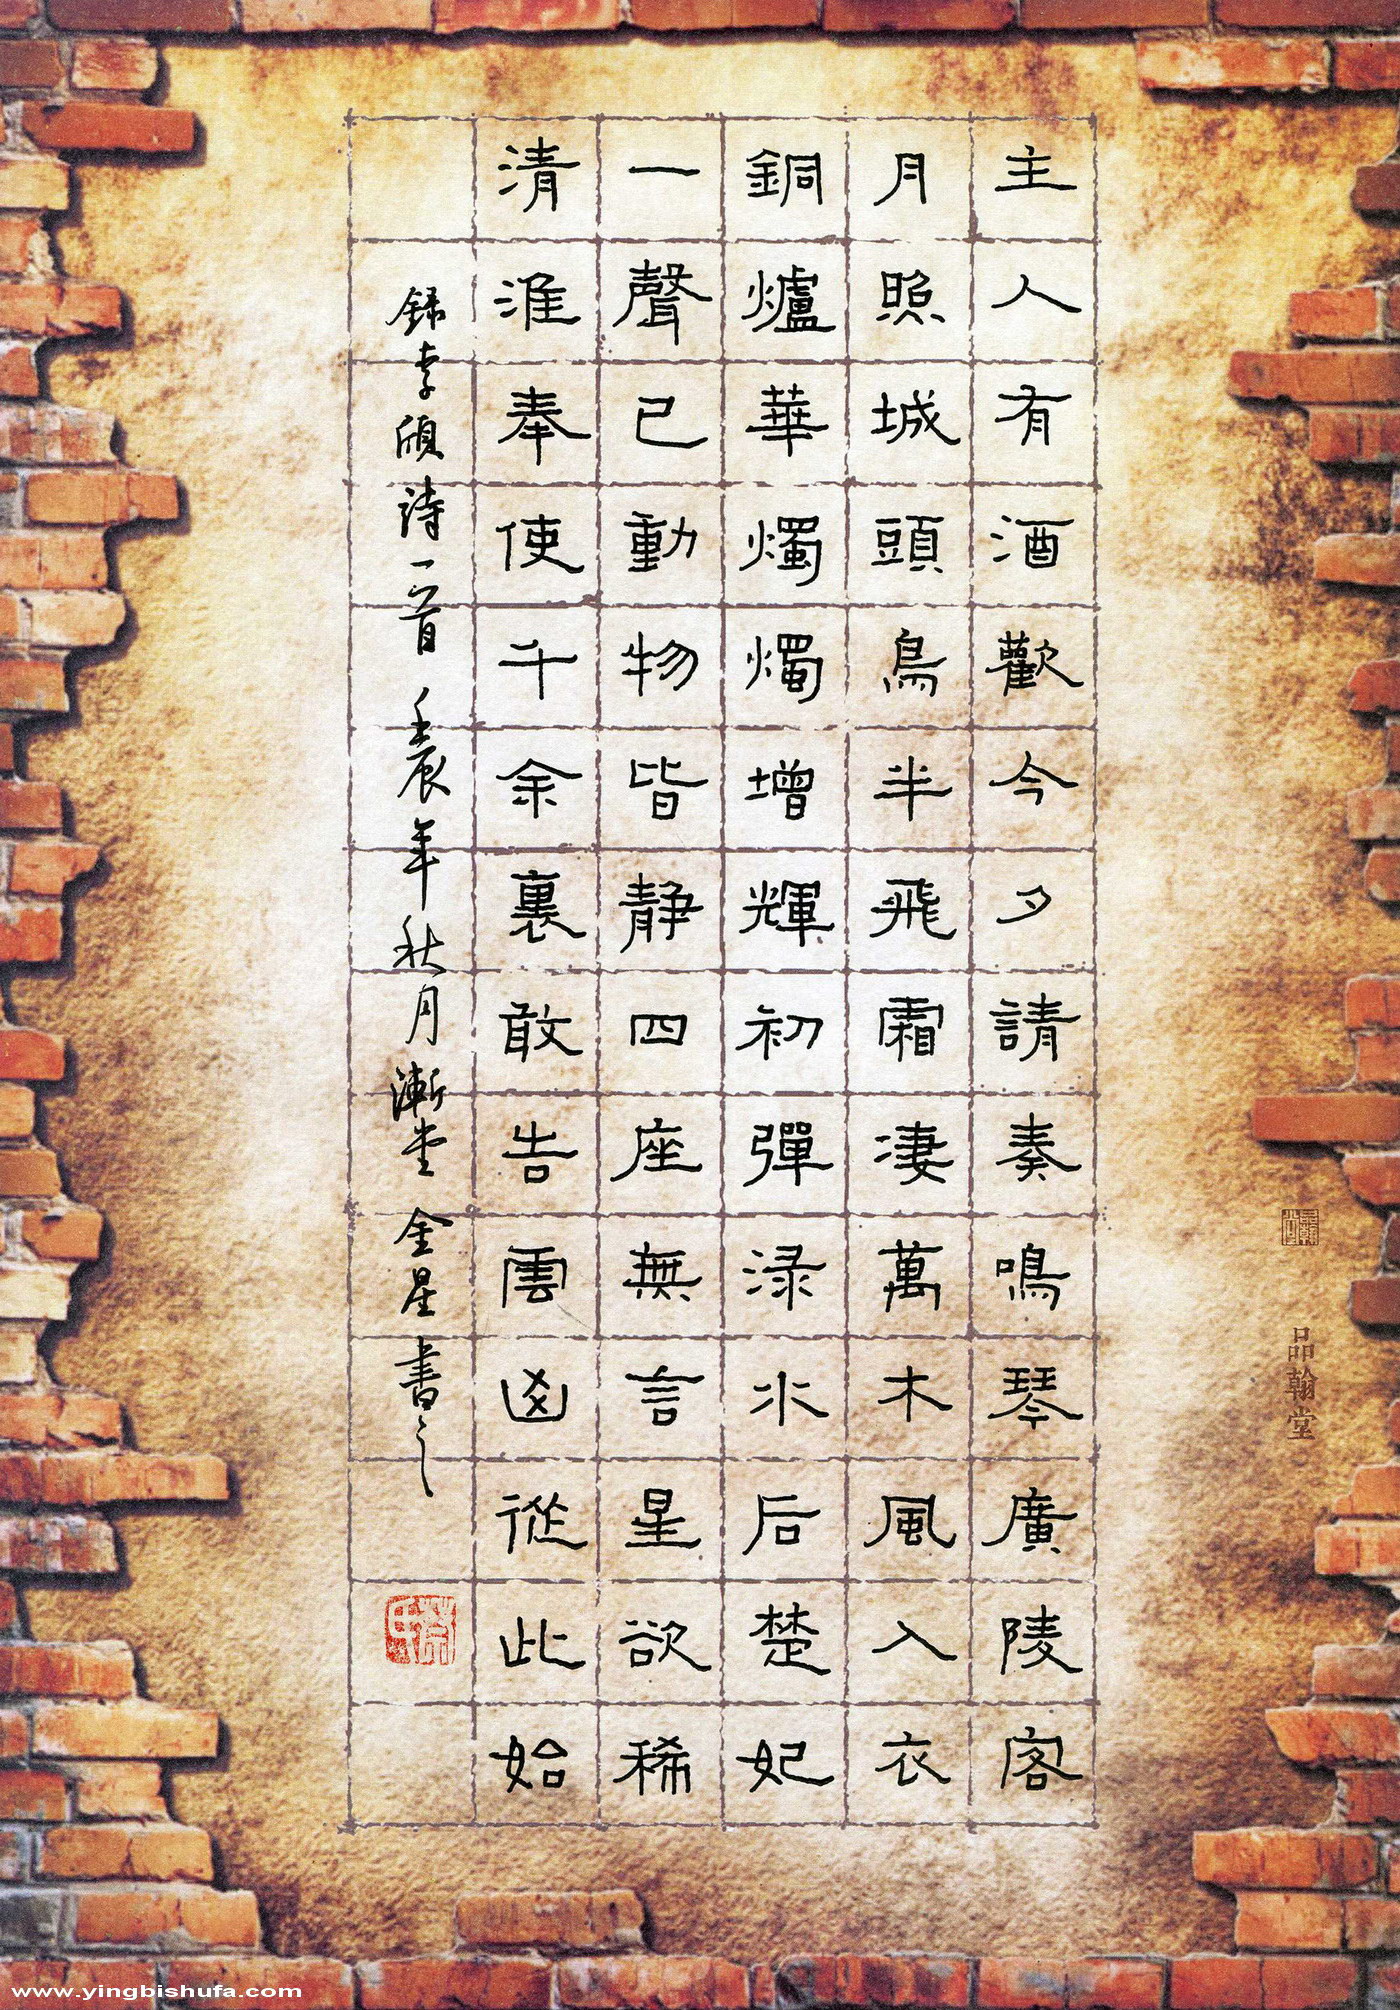 主人有酒歡今夕請奏鳴琴廣陵客
月照城頭鳥半飛霜凄萬木風入衣
銅爐華燭燭增輝初彈渌水后楚妃
一聲已動物皆静四座無言星欲稀
清淮奉使千余裏敢告雲凶從此始
録李頎詩一首 壬辰年秋月漸堂 金星書之
品翰堂
www.yingbishufa.com